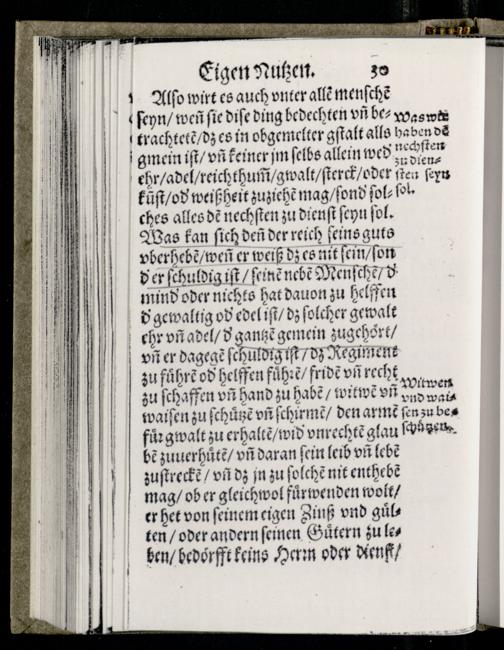 Eigen Nutzen. 30
Also wirt es auch vnter allē menschē
seyn/ weñ sie dise ding bedechten vñ be-
trachtetē/ dz es in obgemelter gstalt alls
gmein ist/ vñ keiner jm selbs allein wed
ehr/ adel/ reichthum̄/ gwalt/ sterck/ oder
kūst/ od weißheit zuziehē mag/ sond sol-
ches alles dē nechsten zu dienst seyn sol.
Was kan sich deñ der reich seins guts
vberhebē/ weñ er weiß dz es nit sein/ son
d er schuldig ist/ seinē nebē Menschē/ d
mind oder nichts hat dauon zu helffen
d gewaltig od edel ist/ dz solcher gewalt
ehr vñ adel/ d gantzē gemein zugehört/
vñ er dagegē schuldig ist/ dz Regiment
zu führē od helffen führē/ fridē vñ recht
zu schaffen vñ hand zu habē/ witwē vñ
waisen zu schützē vñ schirmē/ den armē
für gwalt zu erhaltē/ wid vnrechtē glau
bē zuuerhütē/ vñ daran sein leib vñ lebē
zustreckē/ vñ dz jn zu solchē nit enthebē
mag/ ob er gleichwol fürwenden wolt/
er het von seinem eigen Zinß vnd gül-
ten/ oder andern seinen Gütern zu le-
ben/ bedörfft keins Herrn oder dienst/
Was wir
haben dē
nechsten
zu dien-
sten seyn
sol.
Witwen
vnd wai-
sen zu be-
schützen.